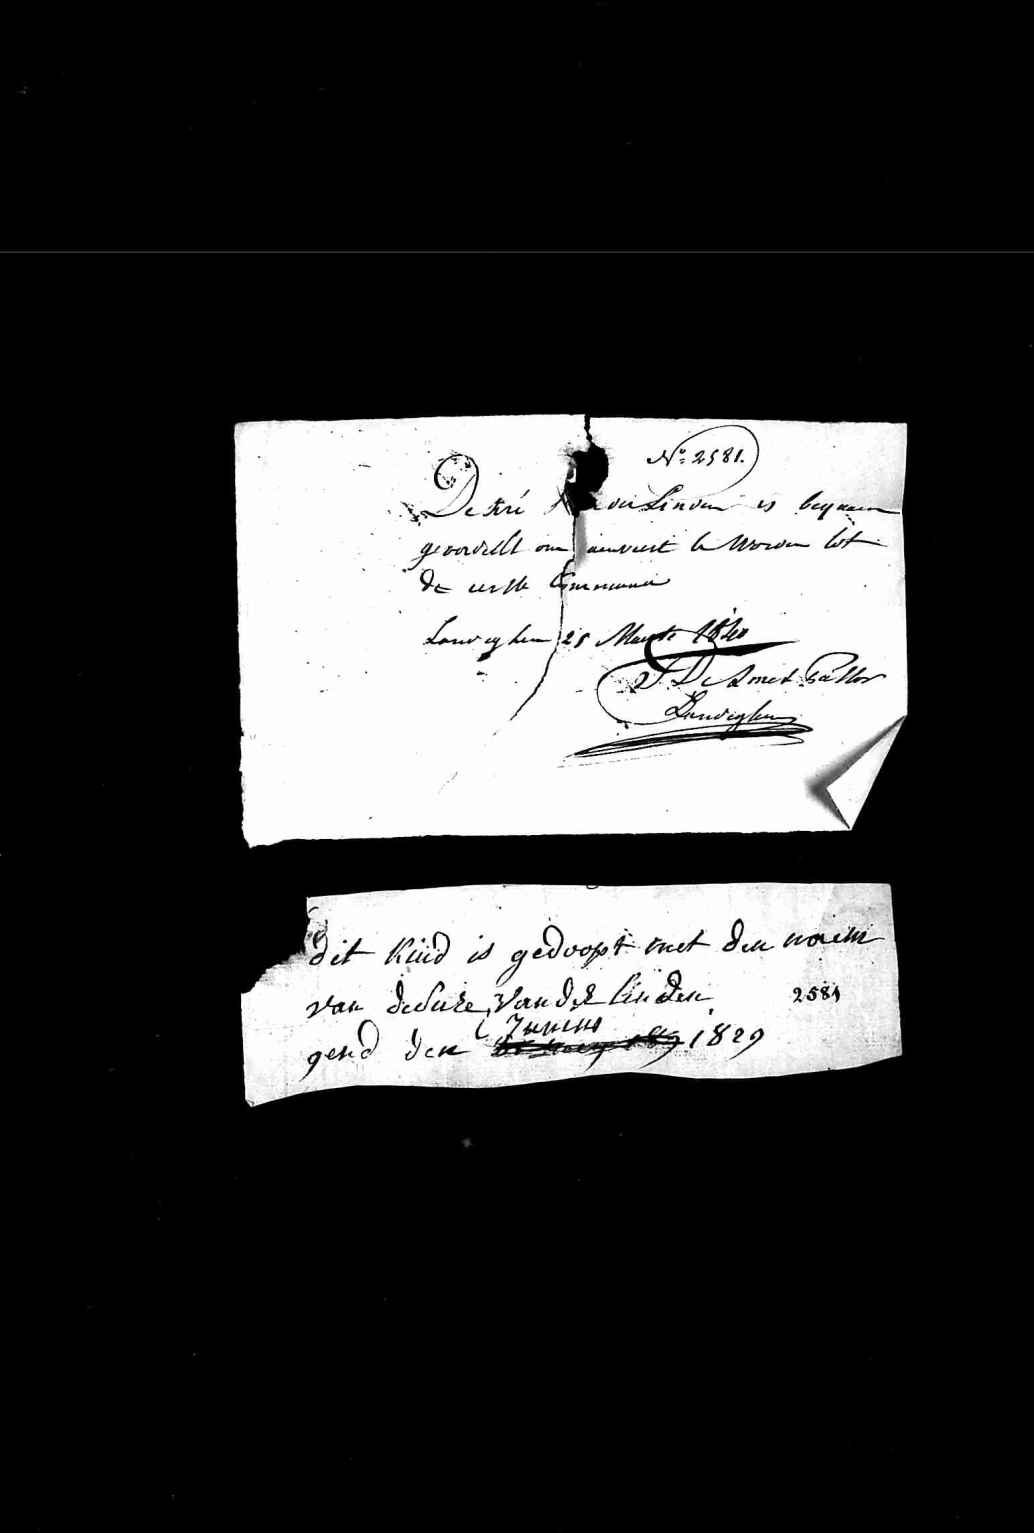 N° 2581.
Desiré Van der Linden is beqaem
geoordeelt om aenveert te worden tot
de eerste Communie
Landeghem 25 Maerte 1840
J. De Smet Pastor
Landeghem
dit kind is gedoopt met den naem
van desire, Van der linden 2581
Junius
gend den 1829